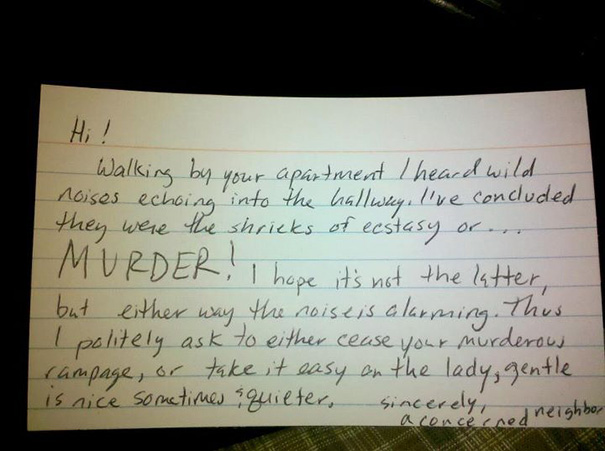 Hi!
Walking by your apartment I heard wild
noises echoing into the hallway. I've concluded
they were the shrieks of ecstasy or...
MURDER! I hope it's not the latter,
but either way the noise is alarming. Thus
I politely ask to either cease your murderous
rampage, or take it easy on the lady, gentle
is nice sometimes & quieter. sincerely,
a concerned neighbor